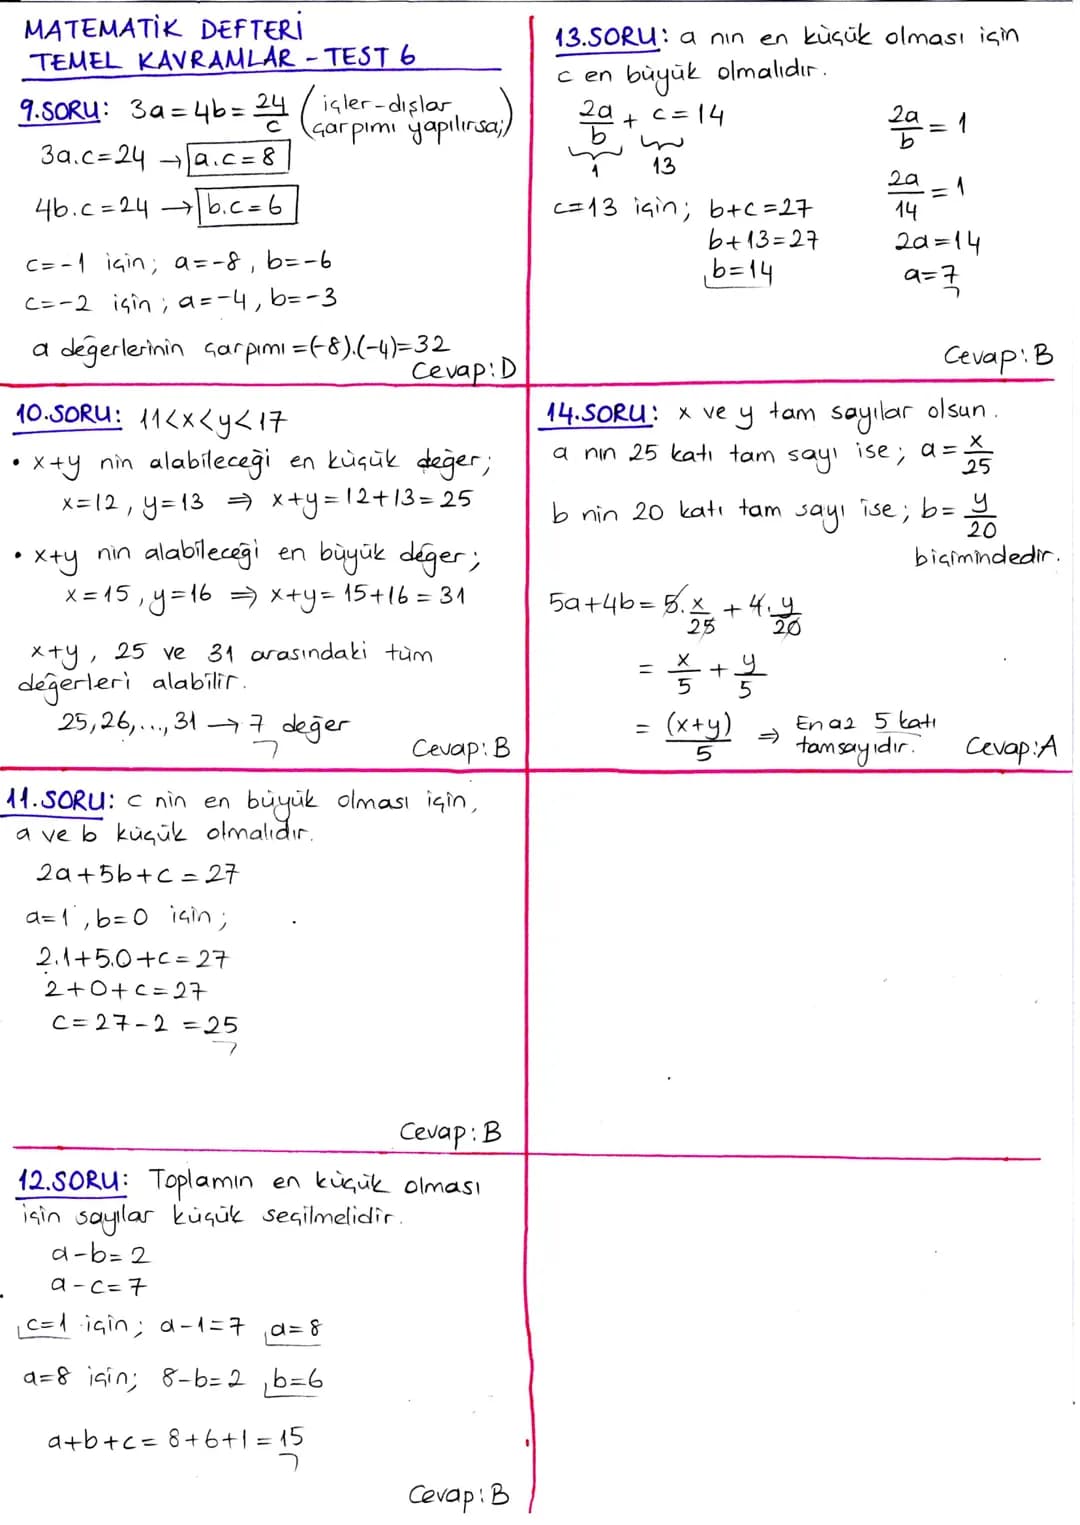 MATEMATİK DEFTERİ
TEMEL KAVRAMLAR - TEST 6
9.SORU: 3a = 4b = 24/c (içler-dışlar çarpımı yapılırsa;)
3a.c=24 → a.c=8
4b.c=24 → b.c=6
c=-1 için; a=-8, b=-6
c=-2 için; a=-4, b=-3
a değerlerinin çarpımı =(-8).(-4)=32
Cevap: D
10.SORU: 11<x<y<17
• x+y nin alabileceği en küçük değer;
x=12, y=13 ⇒ x+y=12+13=25
• x+y nin alabileceği en büyük değer;
x=15, y=16 ⇒ x+y=15+16=31
x+y, 25 ve 31 arasındaki tüm
değerleri alabilir.
25,26,...,31 → 7 değer
Cevap: B
11.SORU: c nin en büyük olması için,
a ve b küçük olmalıdır.
2a+5b+c=27
a=1, b=0 için;
2.1+5.0+c=27
2+0+c=27
c=27-2=25
Cevap: B
12.SORU: Toplamın en küçük olması
için sayılar küçük seçilmelidir.
a-b=2
a-c=7
c=1 için; a-1=7 a=8
a=8 için; 8-b=2 b=6
a+b+c=8+6+1=15
Cevap: B
13.SORU: a nın en küçük olması için
c en büyük olmalıdır.
2a/b + c = 14
1 13
c=13 için; b+c=27
b+13=27
b=14
2a/b = 1
2a/14 = 1
2a=14
a=7
Cevap: B
14.SORU: x ve y tam sayılar olsun.
a nın 25 katı tam sayı ise; a=x/25
b nin 20 katı tam sayı ise; b=y/20
biçimindedir.
5a+4b=5.x/25 + 4.y/20
= x/5 + y/5
= (x+y)/5 ⇒ En az 5 katı
tamsayıdır.
Cevap: A